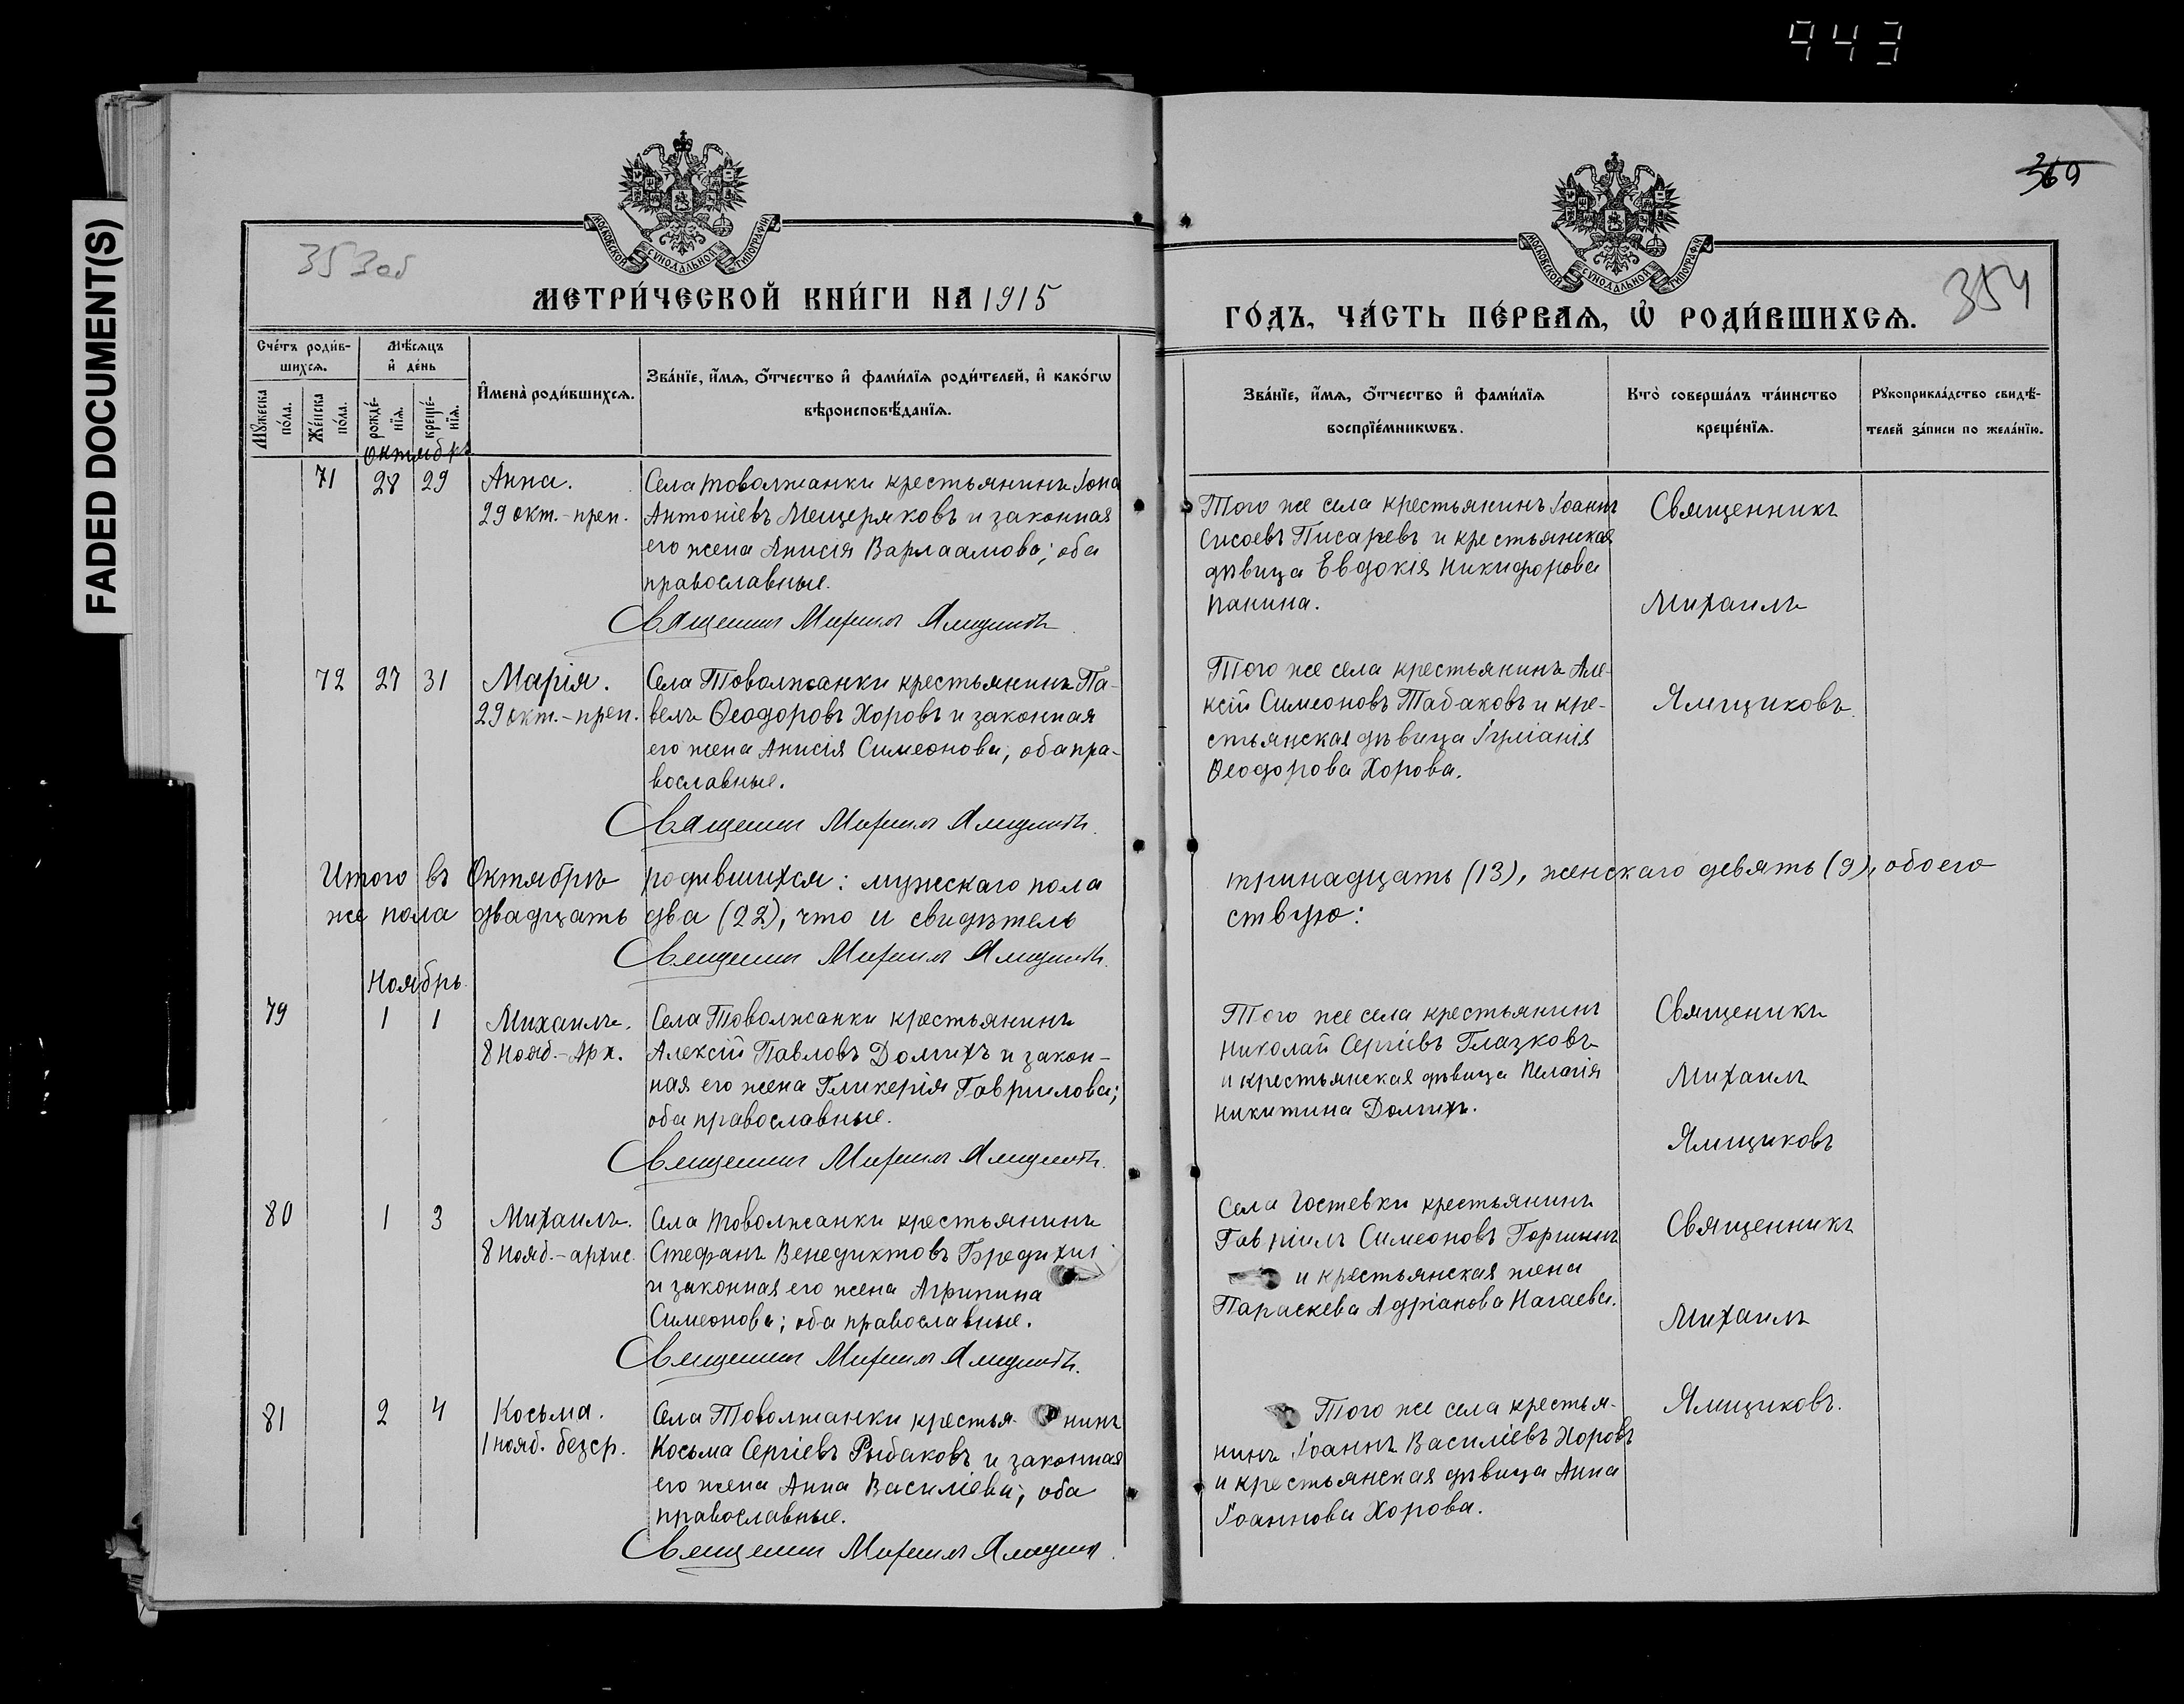 943
FADED DOCUMENT(S)
МОСКОВСКОЙ СѴНОДАЛЬНОЙ ТИПОГРАФІИ
353 об
МЕТРИ́ЧЕСКОЙ КНИ́ГИ НА 1915
Сче́тъ роди́в-
шихсѧ.
Мѣ́сѧцъ
и҆ де́нь
Мꙋжеска
по́ла.
Же́нска
по́ла.
рожде́-
нїѧ.
креще́-
нїѧ.
И҆мена̀ роди́вшихсѧ.
Зва́нїе, и҆́мѧ, ѻ҆́тчество и҆ фами́лїѧ роди́телей, и҆ како́гѡ
вѣроисповѣ́данїѧ.
Октябрь
71 28 29 Анна.
29 окт.-преп.
Села Товолжанки крестьянинъ Іона
Антоніевъ Мещеряковъ и законная
его жена Анисія Варлаамова; оба
православные.
Священникъ Михаилъ Ямщиковъ
72 27 31 Марія.
29 окт.-преп.
Села Товолжанки крестьянинъ Па-
велъ Ѳеодоровъ Хоровъ и законная
его жена Анисія Симеонова; оба пра-
вославные.
Священникъ Михаилъ Ямщиковъ.
Итого въ Октябрѣ родившихся: мужескаго пола
же пола двадцать два (22), что и свидѣтель
Священникъ Михаилъ Ямщиковъ.
Ноябрь
79 1 1 Михаилъ.
8 нояб.-Арх.
Села Товолжанки крестьянинъ
Алексій Павловъ Долгихъ и закон-
ная его жена Гликерія Гавриилова;
оба православные.
Священникъ Михаилъ Ямщиковъ.
80 1 3 Михаилъ.
8 нояб.-архис.
Села Товолжанки крестьянинъ
Стефанъ Венедиктовъ Бредихин
и законная его жена Агрипина
Симеонова; оба православные.
Священникъ Михаилъ Ямщиковъ.
81 2 4 Косьма.
1 нояб. безср.
Села Товолжанки крестья- нинъ
Косьма Сергіевъ Рыбаковъ и законная
его жена Анна Василіева; оба
православные.
Священникъ Михаилъ Ямщиковъ.
369
МОСКОВСКОЙ СѴНОДАЛЬНОЙ ТИПОГРАФІИ
354
ГО́ДЪ, ЧА́СТЬ ПЕ́РВАѦ, Ѡ҆ РОДИ́ВШИХСѦ.
Зва́нїе, и҆́мѧ, ѻ҆́тчество и҆ фами́лїѧ
воспрїе́мникѡвъ.
Кто̀ соверша́лъ та́инство
креще́нїѧ.
Рꙋкоприкла́дство свидѣ́-
телей за́писи по жела́нїю.
Того же села крестьянинъ Іоаннъ
Сисоевъ Писаревъ и крестьянская
дѣвица Евдокія Никифорова
Панина.
Священникъ
Михаилъ
Того же села крестьянинъ Але-
ксій Симеоновъ Табаковъ и кре-
стьянская дѣвица Іуліанія
Ѳеодорова Хорова.
Ямщиковъ.
тринадцать (13), женскаго девять (9), обоего
ствую:
Того же села крестьянинъ
Николай Сергіевъ Глазковъ
и крестьянская дѣвица Пелагія
Никитина Долгихъ.
Священикъ
Михаилъ
Ямщиковъ
Села Гостевки крестьянинъ
Гавріилъ Симеоновъ Горшинъ
и крестьянская жена
Параскева Адріанова Нагаева.
Священникъ
Михаилъ
Того же села крестья-
нинъ Іоаннъ Василіевъ Хоровъ
и крестьянская дѣвица Анна
Іоаннова Хорова.
Ямщиковъ.